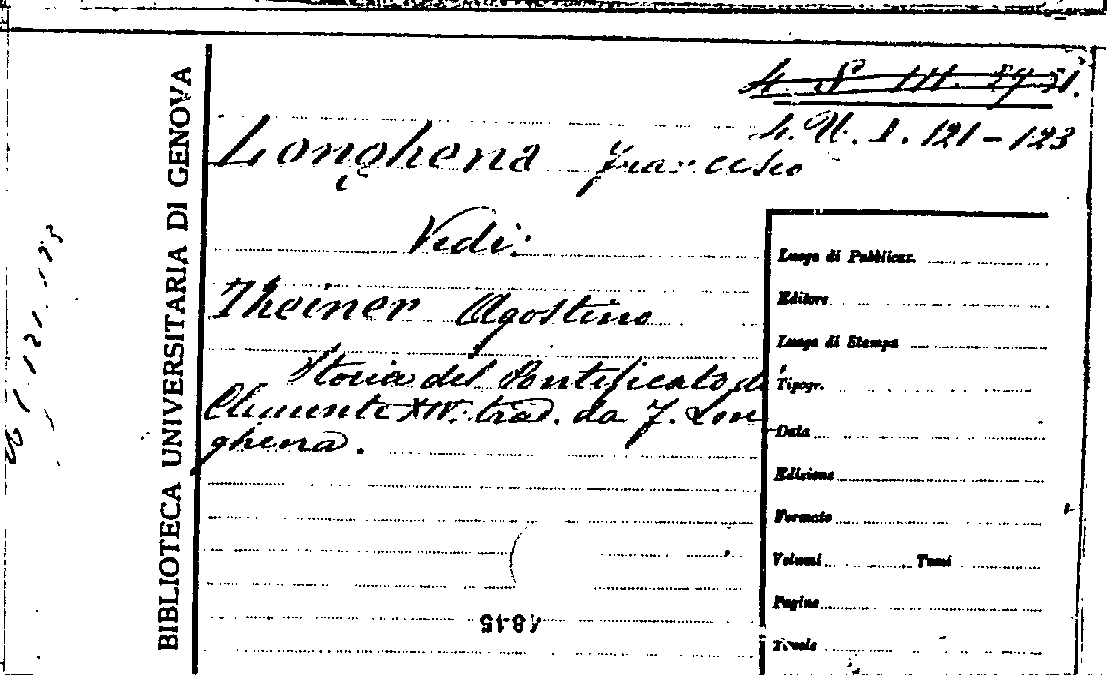 BIBLIOTECA UNIVERSITARIA DI GENOVA
4. U. I. 121-123
Longhena Francesco
Vedi:
Theiner Agostino
Storia del Pontificato di
Clemente XIV. trad. da F. Lon
ghena.
Luogo di Pubblicaz.
Editore
Luogo di Stampa
Tipogr.
Data
Edizione
Formato
Volumi Tomi
Pagine
Tavole